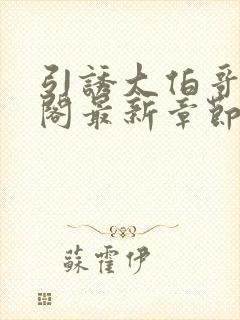 引誘太伯哥
閣最新章節
蘇霍伊